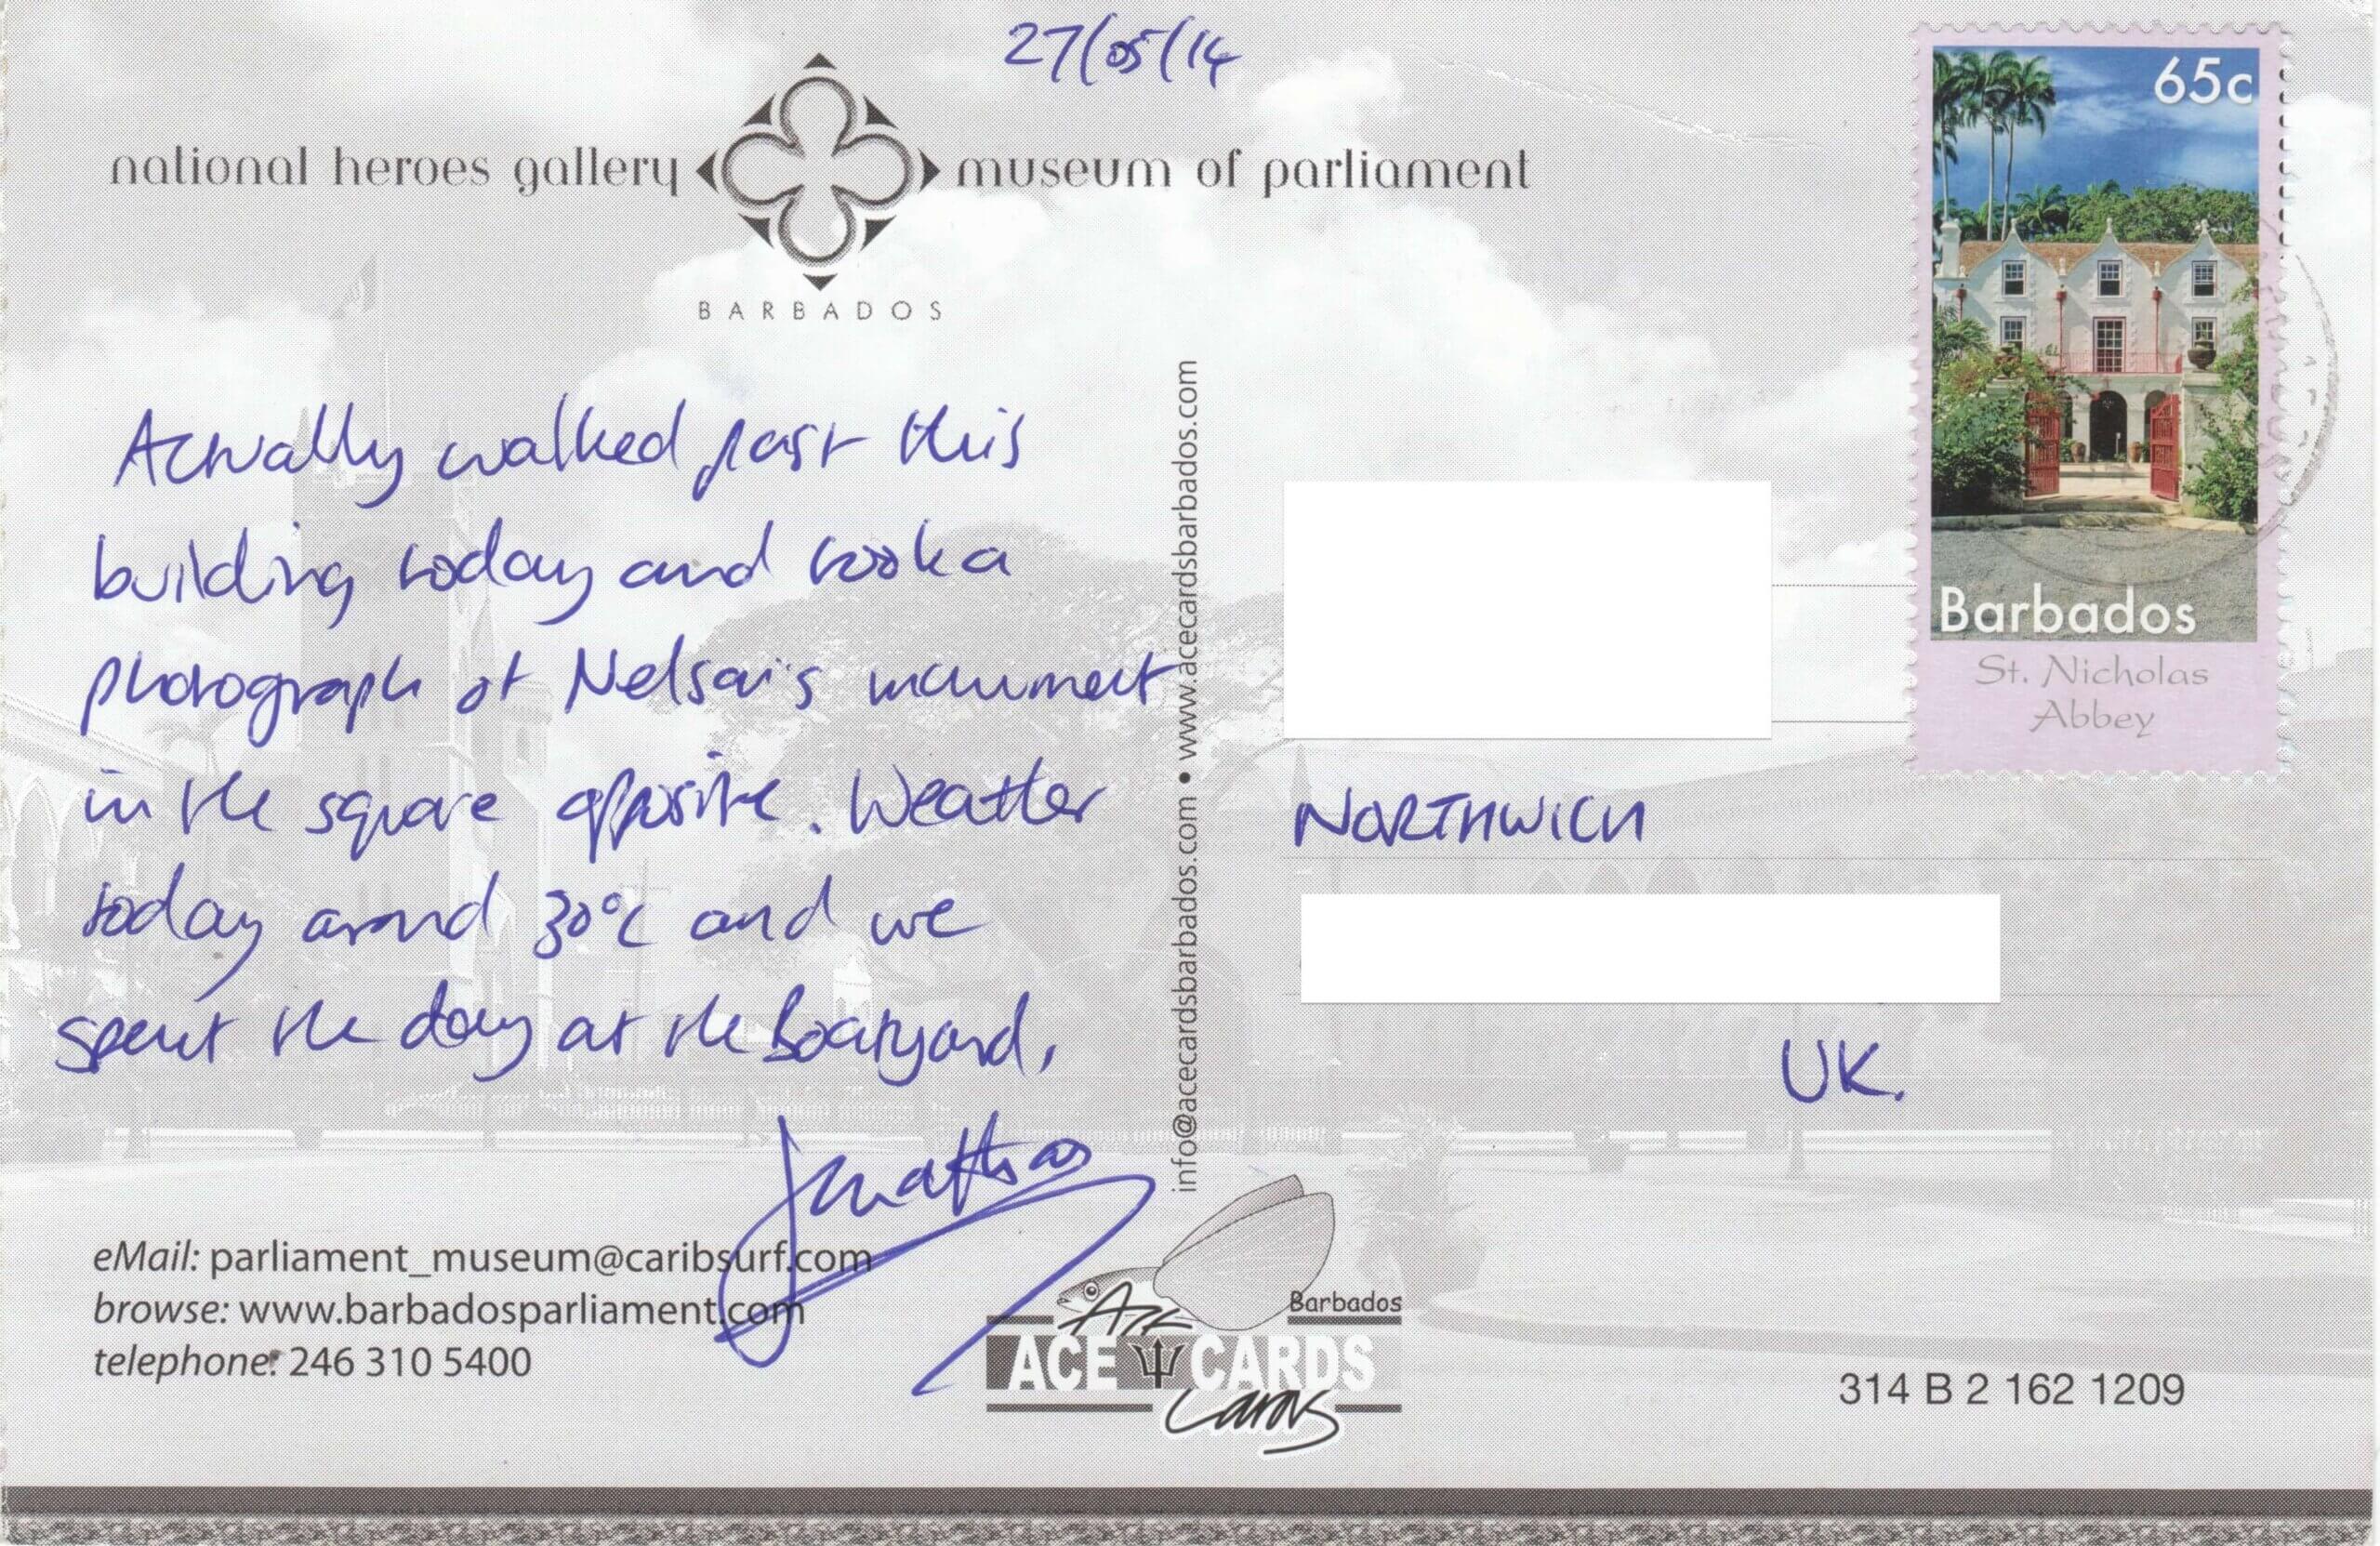 27/05/14
national heroes gallery museum of parliament
BARBADOS
65c
Barbados
St. Nicholas
Abbey
Actually walked past this
building today and took a
photograph of Nelson's monument
in the square opposite. Weather
today around 30°C and we
spent the day at the Boatyard,
Jonathan
info@acecardsbarbados.com • www.acecardsbarbados.com
NORTHWICH
UK.
eMail: parliament_museum@caribsurf.com
browse: www.barbadosparliament.com
telephone: 246 310 5400
Barbados
Art
ACE CARDS
Cards
314 B 2 162 1209